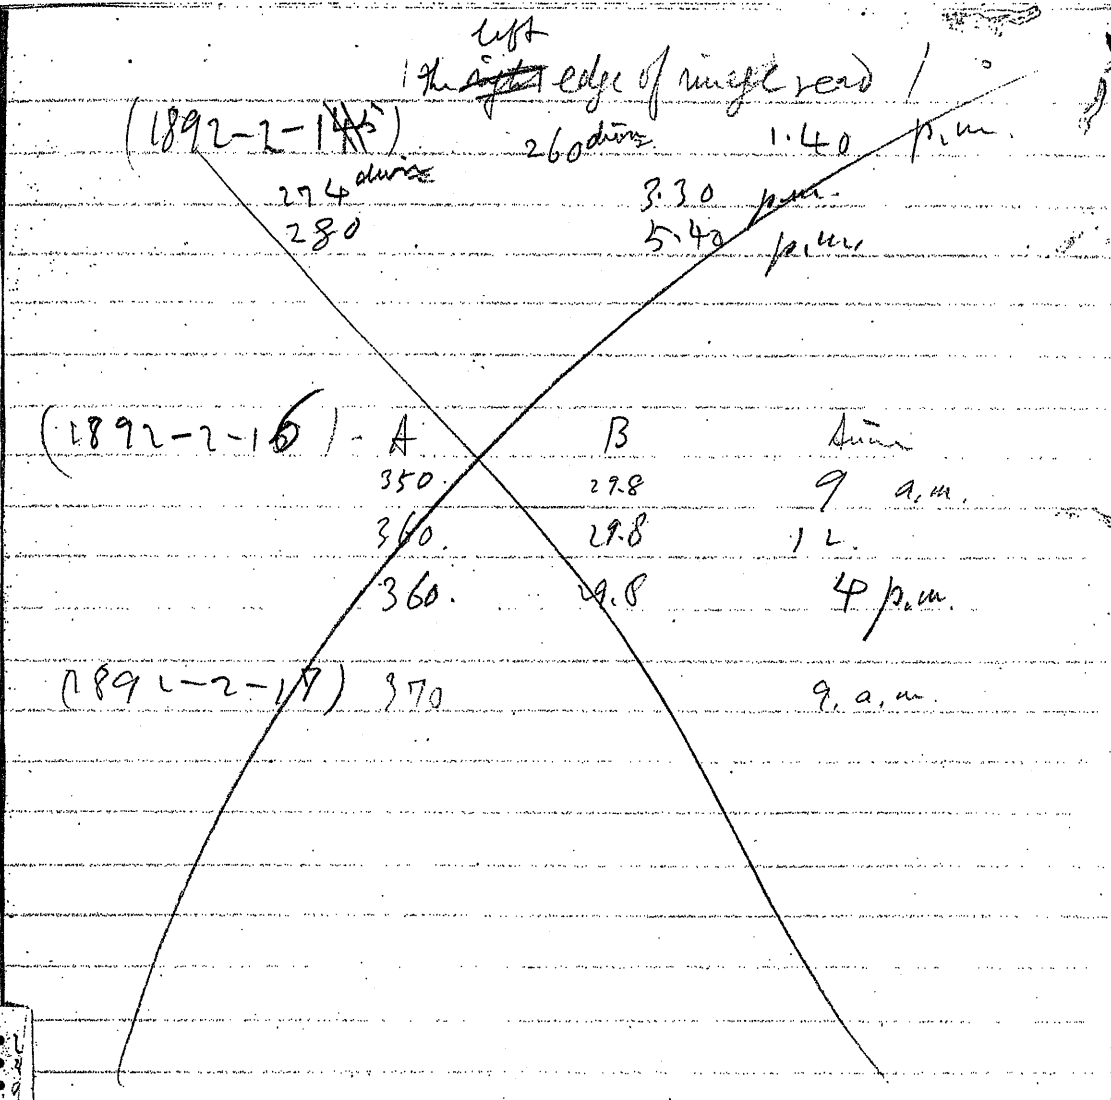 left
the right edge of image read
(1892-2-15) 260 divns 1.40 p.m.
274 divns 3.30 p.m.
280 5.40 p.m.
(1892-2-16) - A B Time
350. 29.8 9 a.m.
360. 29.8 12.
360. 29.8 4 p.m.
(1892-2-17) 370 9. a.m.